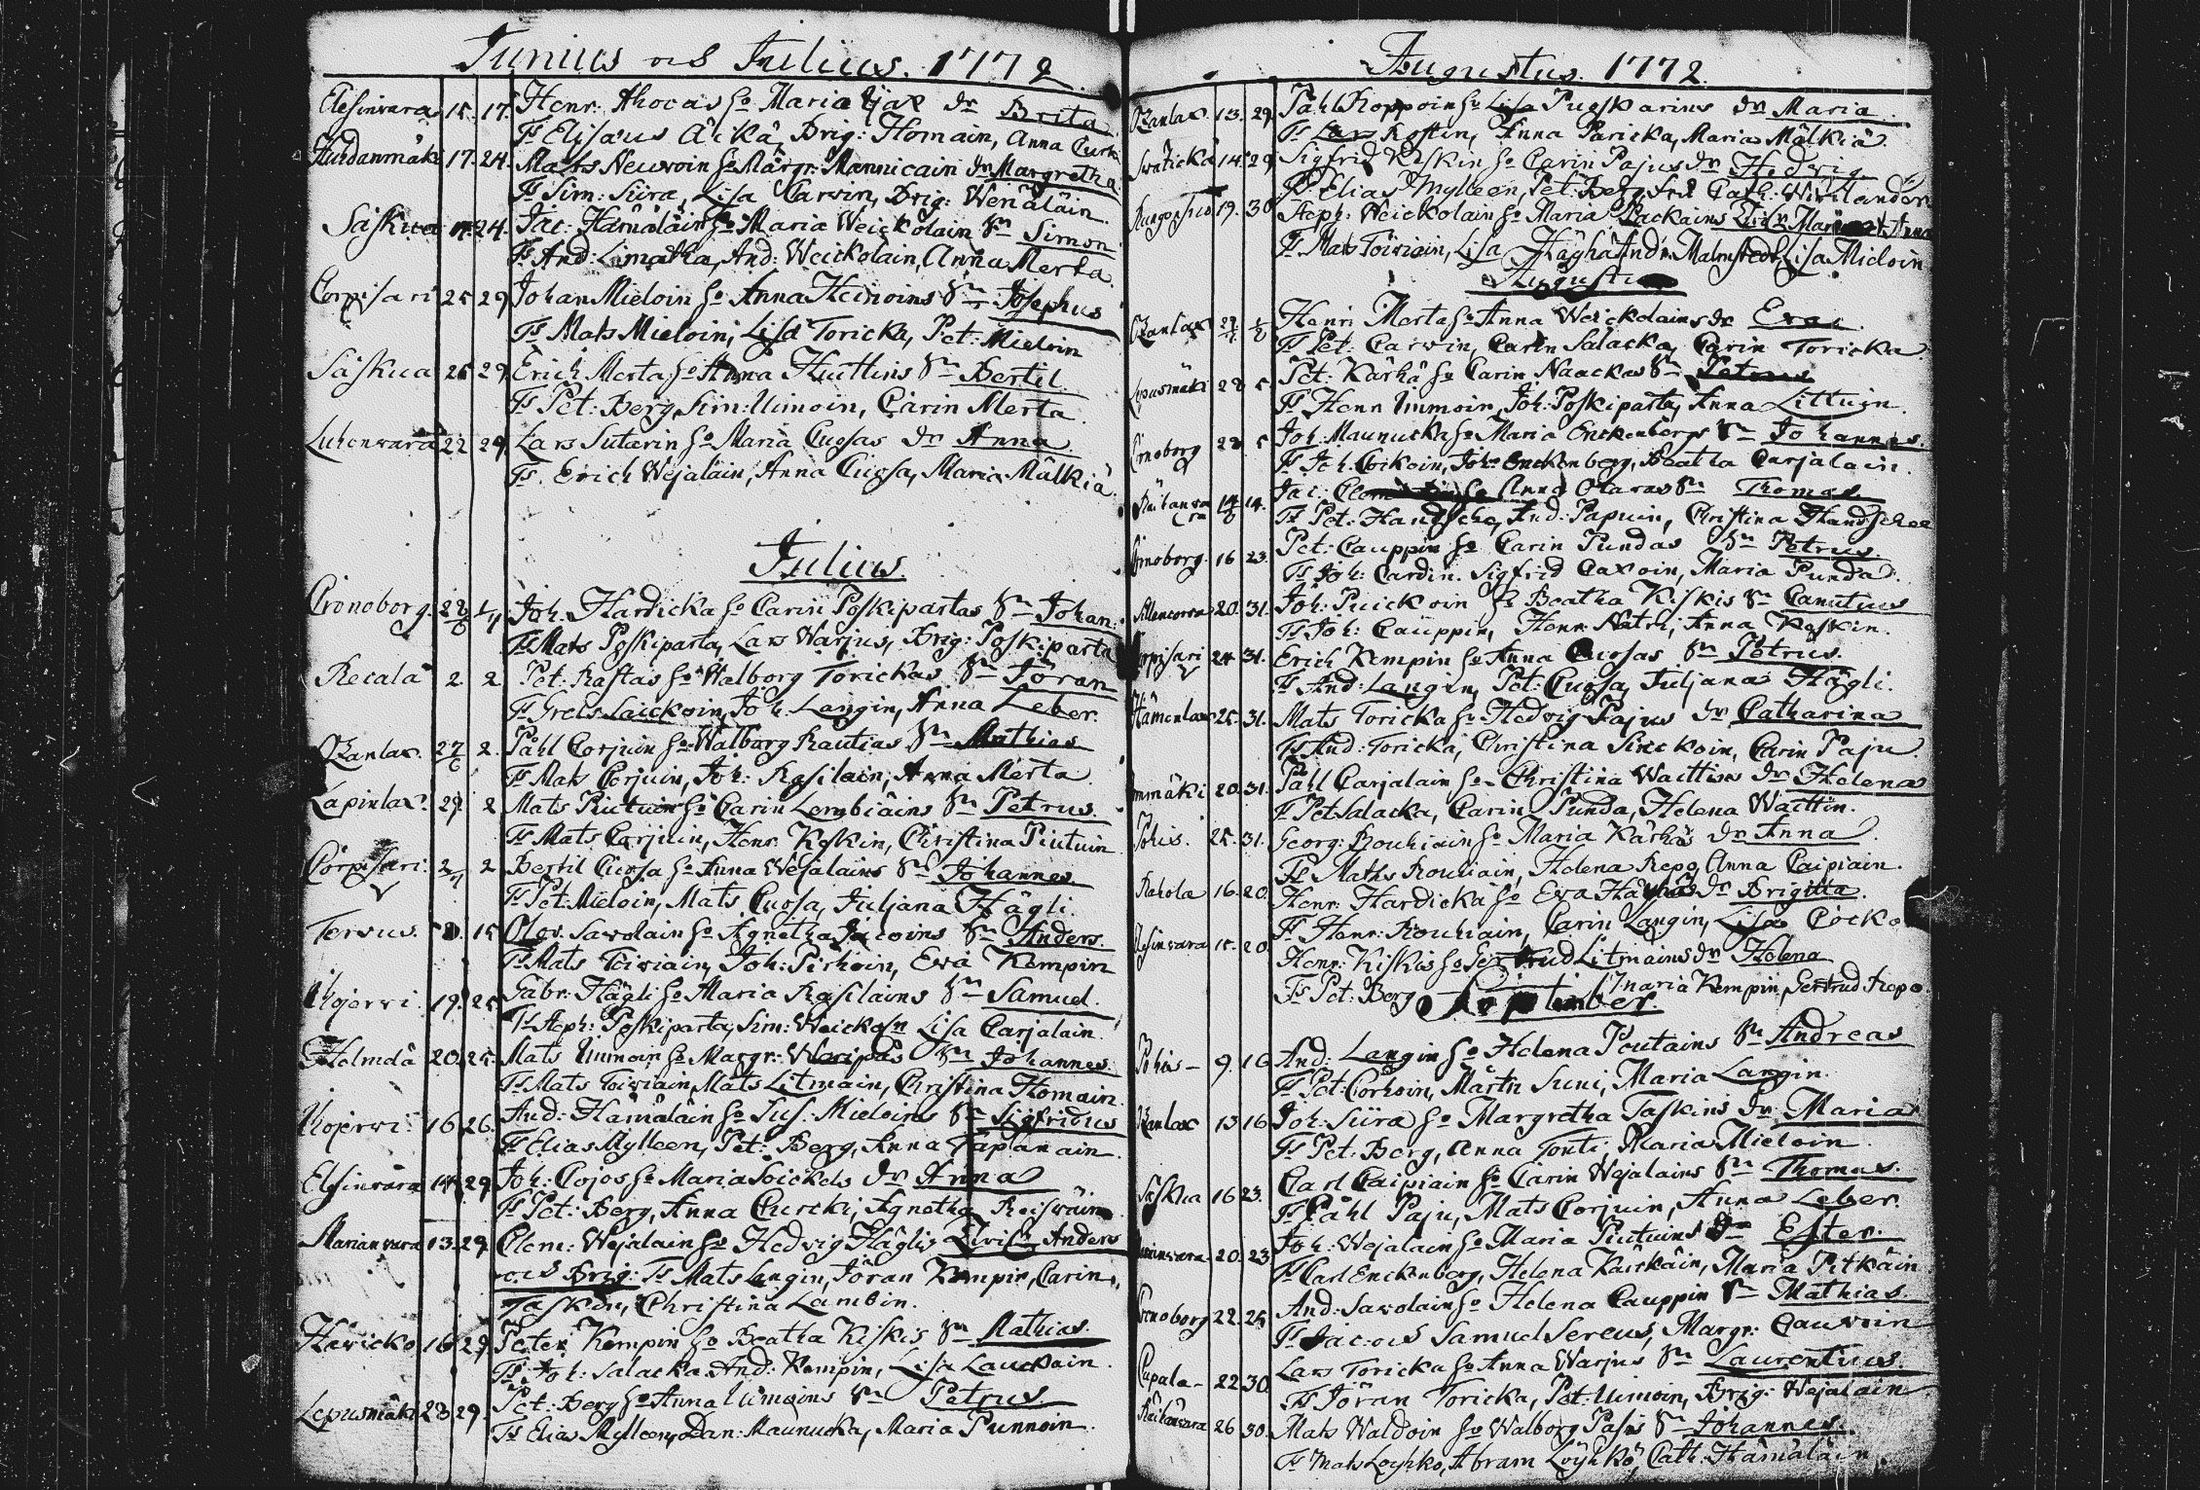 Junius och Julius. 1772
Elisinvara 15. 17. Henr: Ahocas H. Maria Ijäs Dr Brita
Ts Elisæus Äickä, Brig: Homain, Anna Curki
17. 24. Mats Neuvoin H. Margr: Mannicain Dr Margretha
Ts Sim: Siira, Lisa Carvin, Brig: Wenäläin.
Säskua 17. 24. Jac: Hämäläin H. Maria Weickolain Sn Simon
Ts And: Limatka, And: Weickolain, Anna Merta
Corpisari 25 29 Johan Mieloin H. Anna Heinoins Sn Josephus
Ts Mats Mieloin, Lisa Toricka, Pet: Mieloin
Säskua 25 29 Erich Merta H. Anna Huttins Sn Bertil
Ts Pet: Berg, Sim: Uimoin, Carin Merta
Luhenvara 22 29 Lars Sutarin H. Maria Cuosas Dr Anna
Ts Erich Wejalain, Anna Cuosa, Maria Mälkiä
Julius.
Cronoborg. 28/6 1/7 Joh. Hardicka H. Carin Poskipartas Sn Johan
Ts Mats Poskiparta, Lars Warjus, Brig: Poskiparta
Recala 2 2 Pet: Rastas H. Walborg Torickas Sn Jöran
Ts Grels Laickoin, Joh. Langin, Anna Leber.
27/6 2. Påhl Corjuin H. Walborg Rautias Sn Mathias
Ts Mats Corjuin, Joh: Rasilain, Anna Merta
Lapinlax. 29 2 Mats Piutuin H. Carin Lembiäins Sn Petrus.
Ts Mats Corjuin, Henr. Koskin, Christina Piutuin
Corpisari. 2/7 2 Bertil Cuosa H. Anna Wejalains Sn Johannes.
Ts Pet: Mieloin, Mats Cuosa, Juliana Hägli.
Tervus. 15 Olov. Savolain H. Agnetha Sn Anders.
Ts Mats Toiviain, Joh: Pirhoin, Eva Kempin
19. 25 Gabr: Hägli H. Maria Rasilains Sn Samuel.
Ts Steph: Poskiparta, Sim: Weickoln Lisa Carjalain.
Helmelä 20. 25. Mats Uimoin H. Margr: Sn Johannes.
Ts Mats Toiviain, Mats Litmain, Christina Homain.
16. 26. And: Hämäläin H. Sus. Mieloins Sn Sigfridus
Ts Elias Mylleen, Pet: Berg, Anna Taplanain.
Elisinvara 14. 29 Joh: Cojos H. Maria Soickels Dr Anna
Ts Pet: Berg, Anna Churcki, Agnetha
Marianvara 13. 29. Clem: Wejalain H. Hedvig Häglis Anders
och Brig: Ts Mats Langin, Jöran Kempin, Carin
Taskin, Christina Lambin.
Häricko 16 29. Peter Kempin H. Beatha Kiskis Sn Mathias.
Ts Joh: Salacka. And: Kempin, Lisa Lauckain.
Lepusmäki 23. 29. Pet: Berg H. Anna Uimoins Sn Petrus.
Ts Elias Mylleen, Dan: Maunucka, Maria Punnoin.
Augustus. 1772.
13. 29. Påhl Roppoin H. Lisa Dr Maria.
Ts Lars Kostin, Anna Paricka, Maria Mälkiä.
14. 29 Sigfrid Kiskin H. Carin Pajus Dr Hedvig
Ts Elias Mylleen, Pet: Berg, Cath: Wirilander
19. 30 Steph: Weickolain H. Maria Lackains Maria och Anna
Ts Mats Toiviain, Lisa Häyhä And: Malmstedt, Lisa Mieloin
Augustus
Henr: Merta H. Anna Weickolains Dr Eva.
Ts Pet: Carvin, Carin Salacka, Carin Toricka
Lepusmäki 28 5. Pet: Kärhä H. Carin Naackas Sn Petrus
Ts Henr. Uimoin, Joh: Poskiparta, Anna Littuin.
Cronoborg 28 5 Joh: Maunucka H. Maria Enckenbergs Sn Johannes.
Ts Joh: Coikoin, Joh: Enckenberg, Beatha Carjalain.
14. Jac: Anna Sn Thomas
Ts Pet: Handsche, And: Papuin, Christina Handschee
Cronoborg. 16 23 Pet: Cauppin H. Carin Pundas Sn Petrus.
Ts Joh: Cardin. Sigfrid Caxoin, Maria Punda.
20. 31. Joh: Puickoin H. Beatha Kiskis Sn Canutus
Ts Joh: Cauppin, Henr. Natri, Anna Koskin.
Corpisari 24. 31. Erich Kempin H. Anna Cuosas Sn Petrus.
Ts And: Langin, Pet: Cuosa, Juljana Hägli.
Hämenlax 25. 31. Mats Toricka H. Hedvig Pajus Dr Catharina
Ts And: Toricka, Christina Sirckoin, Carin Paju.
20. 31. Påhl Carjalain H. Christina Waittins Dr Helena
Ts Pet Salacka, Carin Punda, Helena Waittin.
Pohis. 25. 31. Georg: Rouhiain H. Maria Kärhäs Dr Anna
Ts Maths Rouhiain, Helena Repo, Anna Caipiain.
Rahola 16. 20. Henr: Hardicka H. Eva Häyhäs Dr Brigitta.
Ts Henr: Rouhiain, Carin Langin, Lisa Cocko
Elisinvara 15. 20. Henr: Kiskis H. Gertrud Litmains Dr Helena
Ts Pet: Berg Maria Kempin, Gertrud Repo
September
Pohis - 9. 16 And: Langin H. Helena Poutains Sn Andreas
Ts Pet: Corhoin, Märtn Suni, Maria Langin.
13 16 Joh: Siira H. Margretha Taskins Dr Maria
Ts Pet: Berg, Anna Tonti, Maria Mieloin.
Säskua 16 23. Carl Caipiain H. Carin Wejalains Sn Thomas.
Ts Påhl Paju, Mats Corjuin, Anna Leber.
20. 23 Joh: Wejalain H. Maria Piutuins Dr Ester.
Ts Carl Enckenberg, Helena Kärckäin, Maria Pitkäin
Cronoborg 22. 25. And: Savolain H. Helena Cauppin Sn Mathias.
Ts Jac: och Samuel Sereus, Margr: Cauroin
Capala - 22 30 Lars Toricka H. Anna Warjus Sn Laurentius.
Ts Jöran Toricka, Pet: Uimoin, Brig: Wejalain
26 30. Mats Waldoin H. Walborg Pajus Sn Johannes.
Ts Mats Löyhkö, Abram Löyhkö, Cath: Hämäläin.